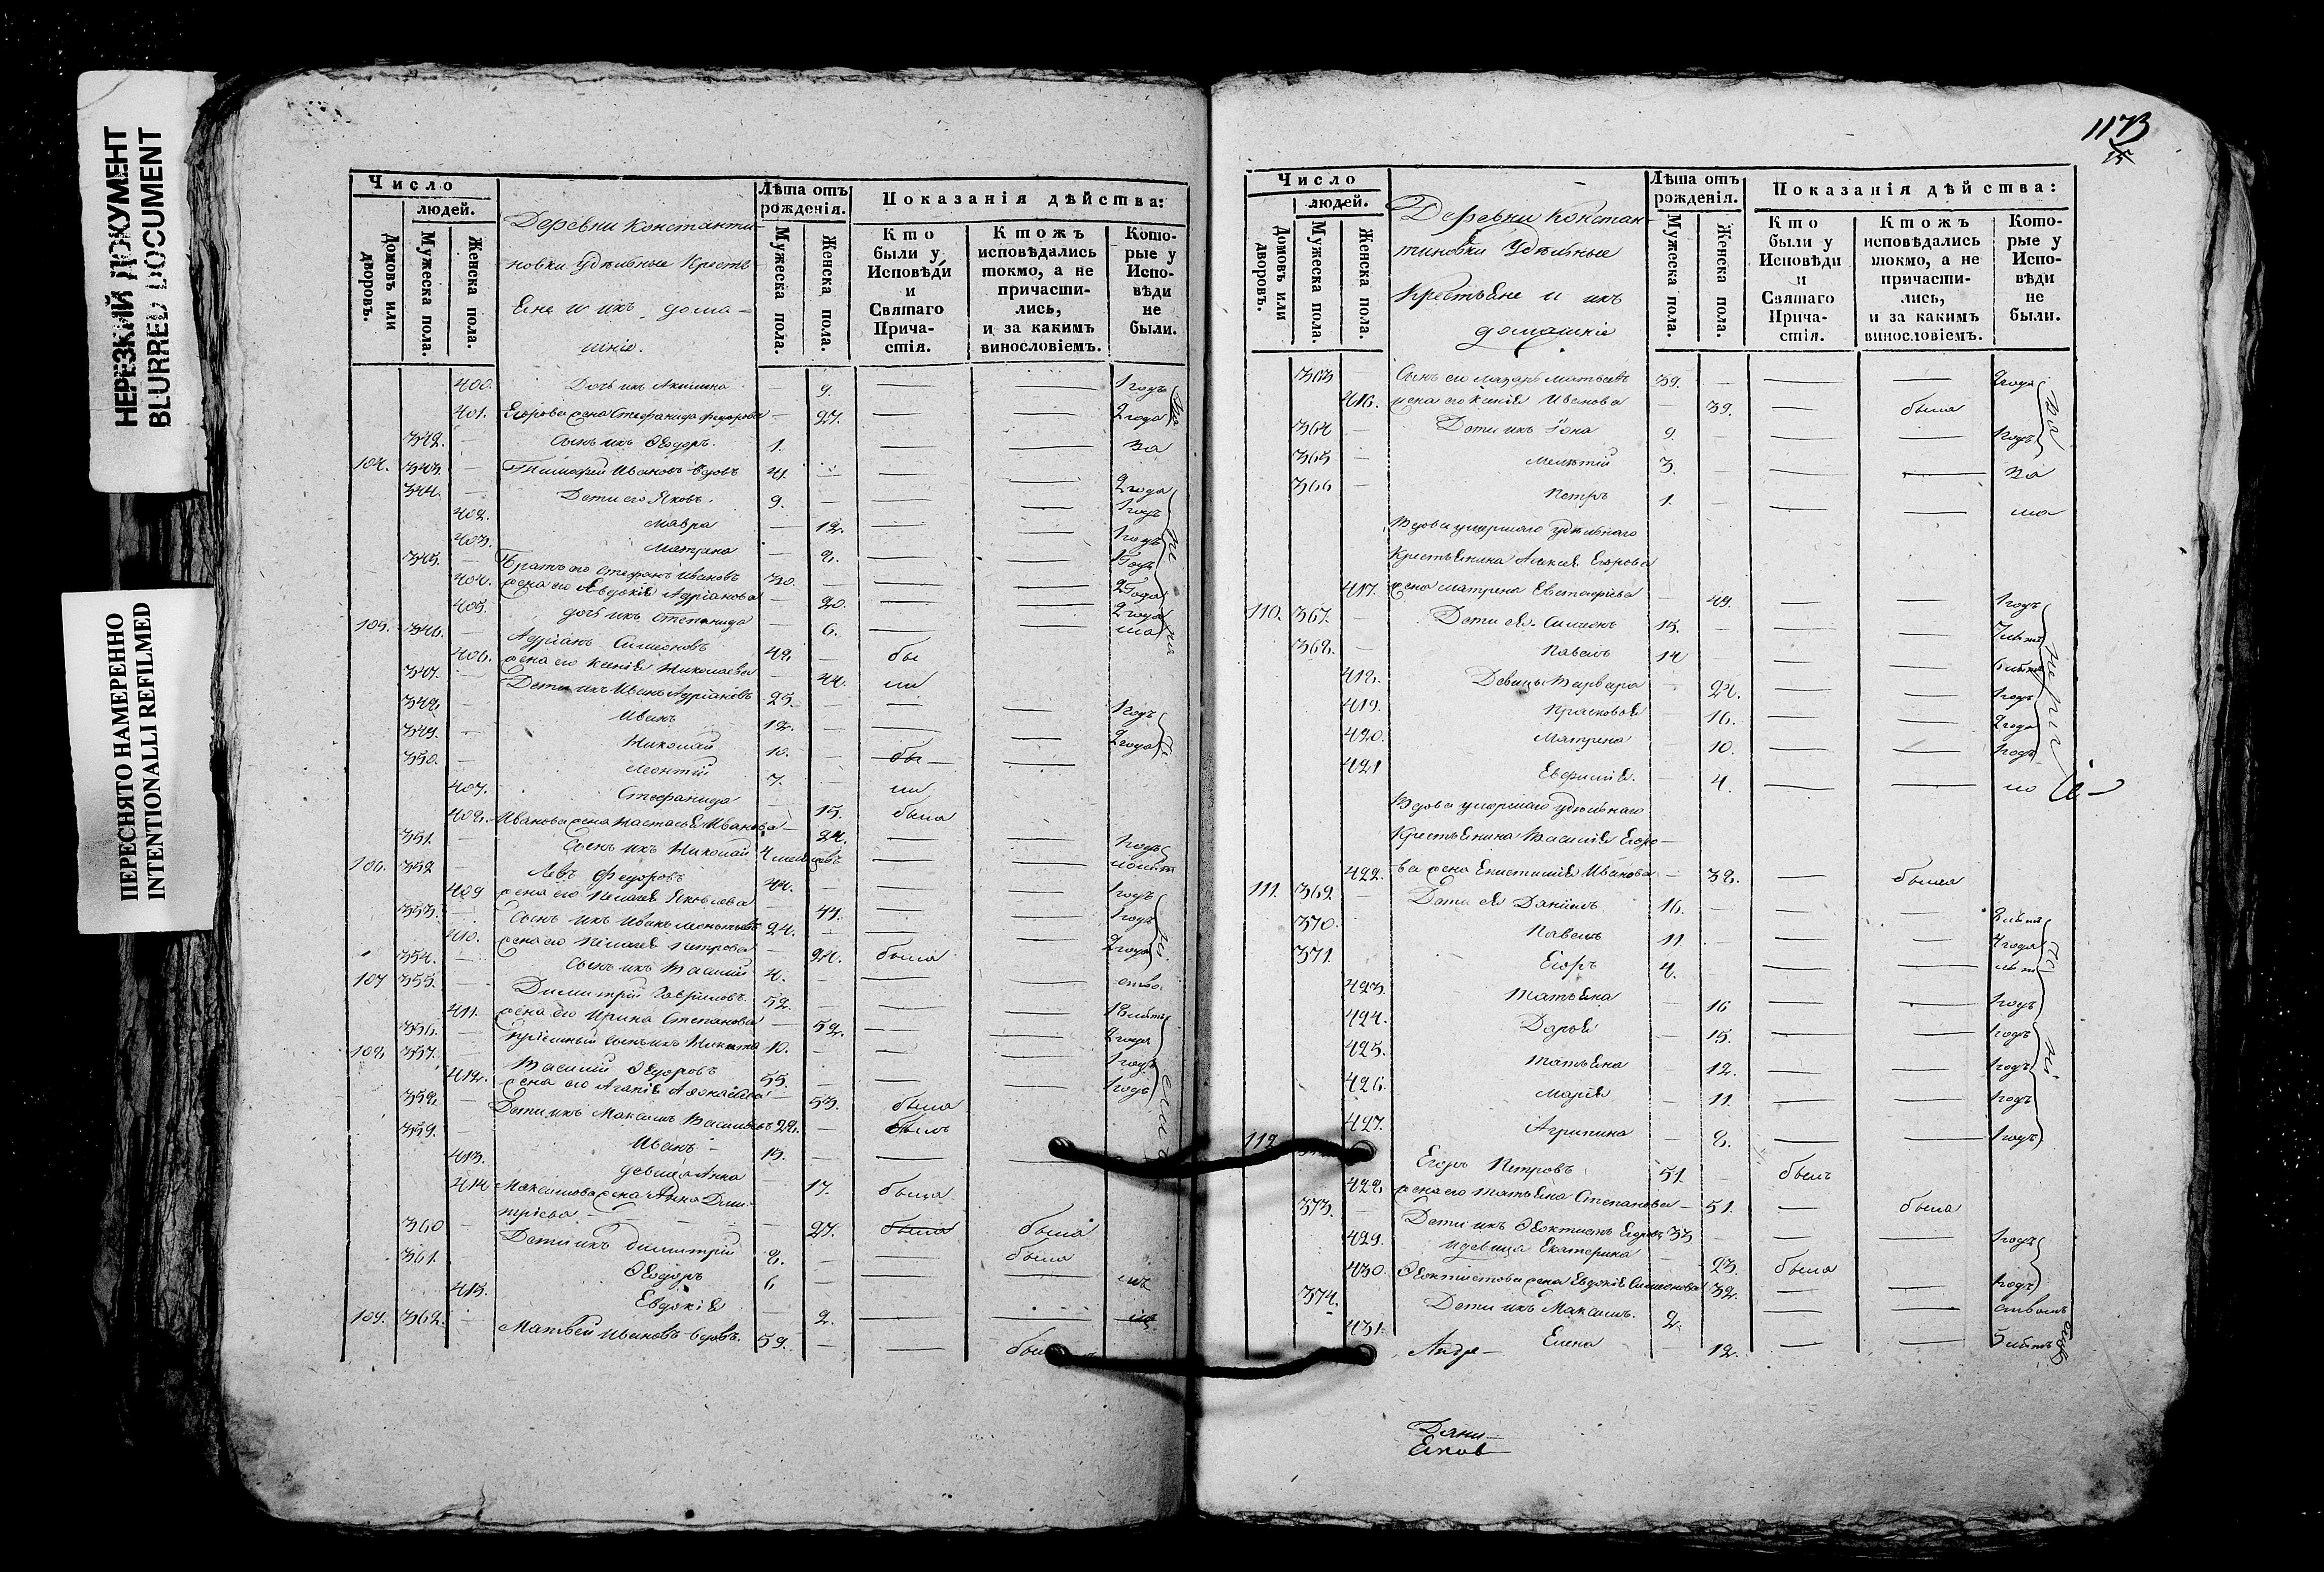 НЕРЕЗКИЙ ДОКУМЕНТ
BLURRED DOCUMENT
ПЕРЕСНЯТО НАМЕРЕННО
INTENTIONALLI REFILMED
Число
людей.
Домовъ или дворовъ.
Мужеска пола.
Женска пола.
Деревни Константи-
новки Удѣльные Кресть
яне и ихъ дома-
шніе.
Лѣта отъ рожденія.
Мужеска пола.
Женска пола.
Показанія дѣйства:
Кто были у Исповѣди и Святаго Причастія.
Ктожъ исповѣдались токмо, а не причастились, и за какимъ винословіемъ.
Которые у Исповѣди не были.
400. Дочь ихъ Акилина 9. 1 годъ
401. Егорова жена Стефанида Федорова 27. 2 года
342. Сынъ ихъ Ѳеодоръ. 1. за
104. 343. Тимофей Ивановъ вдовъ 41. 2 года
344. Дети его Яковъ. 9. 1 годъ
402. Мавра 12. 1 годъ
403. Матрена 8.
345. Братъ его Стефанъ Ивановъ 30. 2 года
404. жена его Авдокія Адріанова 20. 2 года
405. дочь ихъ Степанида 6. ма
105. 346. Адріанъ Симеоновъ 48. бы
406. жена его Ксенія Николаева 44. ли
347. Дети ихъ Иванъ Адріановъ 25. 1 годъ
348. Иванъ 12. 2 года
349. Николай 10. бы
350. Леонтій 7. ли
407. Стефанида 15. была
408. Иванова жена Настасья Иванова 24. 1 годъ
351. Сынъ ихъ Николай
106. 352 Левъ Федоровъ 44. 1 годъ
409 жена его Пелагея Яковлева 41. 1 годъ
353. Сынъ ихъ Иванъ Леонтьевъ 24. 2 года
410. жена его Пелагея Петрова 24. была
354. Сынъ ихъ Василій 4.
107 355. Димитрій Гавриловъ. 52. 18 лѣтъ
411. жена его Ирина Степанова 52. 2 года
356. Пріемный сынъ ихъ Никита 10. 1 годъ
108 357. Василій Ѳедоровъ 55. 1 годъ
412. жена его Агапія Аѳонасьева 53. была
358. Дети ихъ Максимъ Васильевъ 28. былъ
359. Иванъ 15.
413. девица Анна 17. была
414 Максимова жена Анна Дми-
тріева 27. была была
360 Дети ихъ Димитрій 8. была
361. Ѳеодоръ 6
415. Евдокія 2.
109. 362. Матвей Ивановъ вдовъ. 59.
1173
15
Число
людей.
Домовъ или дворовъ.
Мужеска пола.
Женска пола.
Деревни Констан-
тиновки Удѣльные
Крестьяне и ихъ
домашніе
Лѣта отъ рожденія.
Мужеска пола.
Женска пола.
Показанія дѣйства:
Кто были у Исповѣди и Святаго Причастія.
Ктожъ исповѣдались токмо, а не причастились, и за какимъ винословіемъ.
Которые у Исповѣди не были.
363 Сынъ его Лазарь Матвеевъ 39. 2 года
416. жена его Ксенія Иванова 39. была
364 Дети ихъ Iона 9. 1 годъ
365 Мелетій 3. за
366 Петръ 1. ма
Вдова умершаго удѣльнаго
Крестьянина Алексея Егорова
417. жена Матрена Евстафіева 49. 1 годъ
110. 367. Дети ея Симеонъ 15. 7 лѣтъ
368. Павелъ 14 6 лѣтъ
418. Девицы Варвара 24. 1 годъ
419. Прасковья 16. 2 года
420. Матрена 10. 1 годъ
421 Евфимія. 4.
Вдова умершаго удѣльнаго
Крестьянина Василія Егоро-
422. ва жена Епистимія Иванова 38. была
111. 369 Дети ея Даніилъ 16.
370. Павелъ 11. 4 года
371. Егоръ 4.
423. Татьяна 16 1 годъ
424. Дарья 15. 1 годъ
425. Татьяна 12. 1 годъ
426. Марія 11. 1 годъ
427. Агрипина 8. 1 годъ
112 Егоръ Петровъ 51. былъ
428 жена его Татьяна Степанова 51. была
373. Дети ихъ Ѳеоктистъ Егоровъ 33 1 годъ
429. и девица Екатерина 23. была
430. Ѳеоктистова жена Евдокія Симеонова 32. 1 годъ
374. Дети ихъ Максимъ. 2.
431. Елена 12. 5 лѣтъ